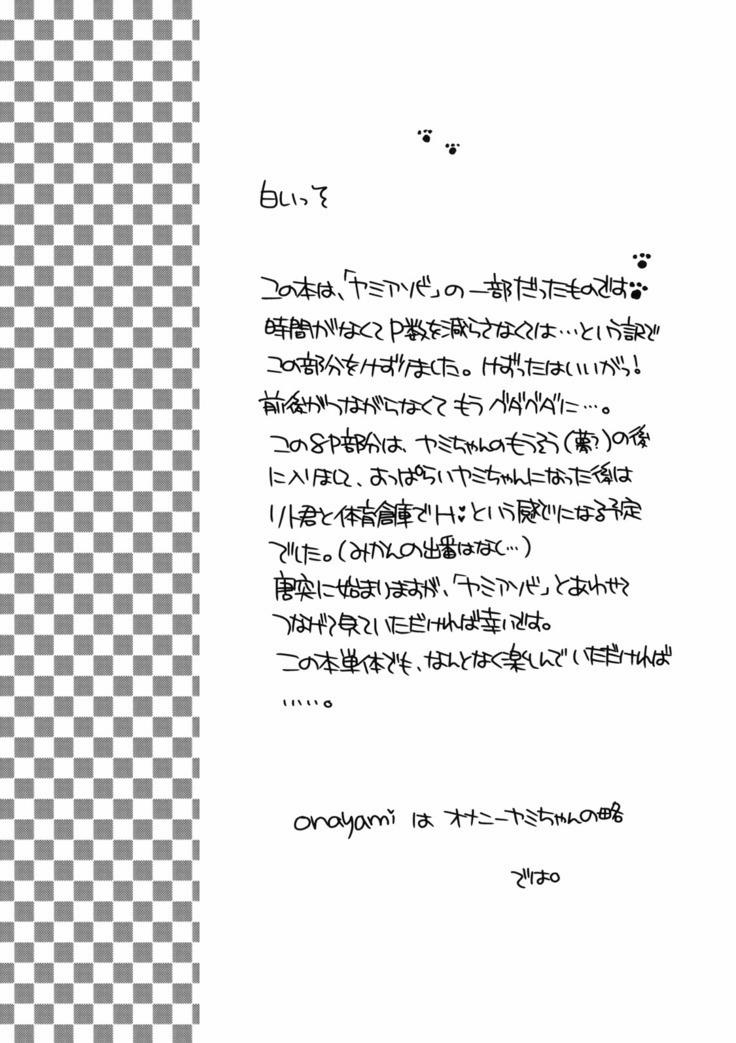 白いっそ
この本は、「ヤミアソビ」の一部だったものです
時間がなくてP数を減らさなくては…という訳で
この部分をけずりました。けずったはいいがっ!
前後がつながらなくてもうベタベタに…。
この8P部分は、ヤミちゃんのもうそう(夢?)の後
に入りまして、よっぱらいヤミちゃんになった後は
リト君と体育倉庫でH♥という感じになる予定
でした。(みかんの出番はなし…)
唐突に始まりますが、「ヤミアソビ」とあわせて
つなげて見ていただければ幸いです。
この本単体でも、なんとなく楽しんでいただければ
……。
onayami は オナニーヤミちゃんの略
では。